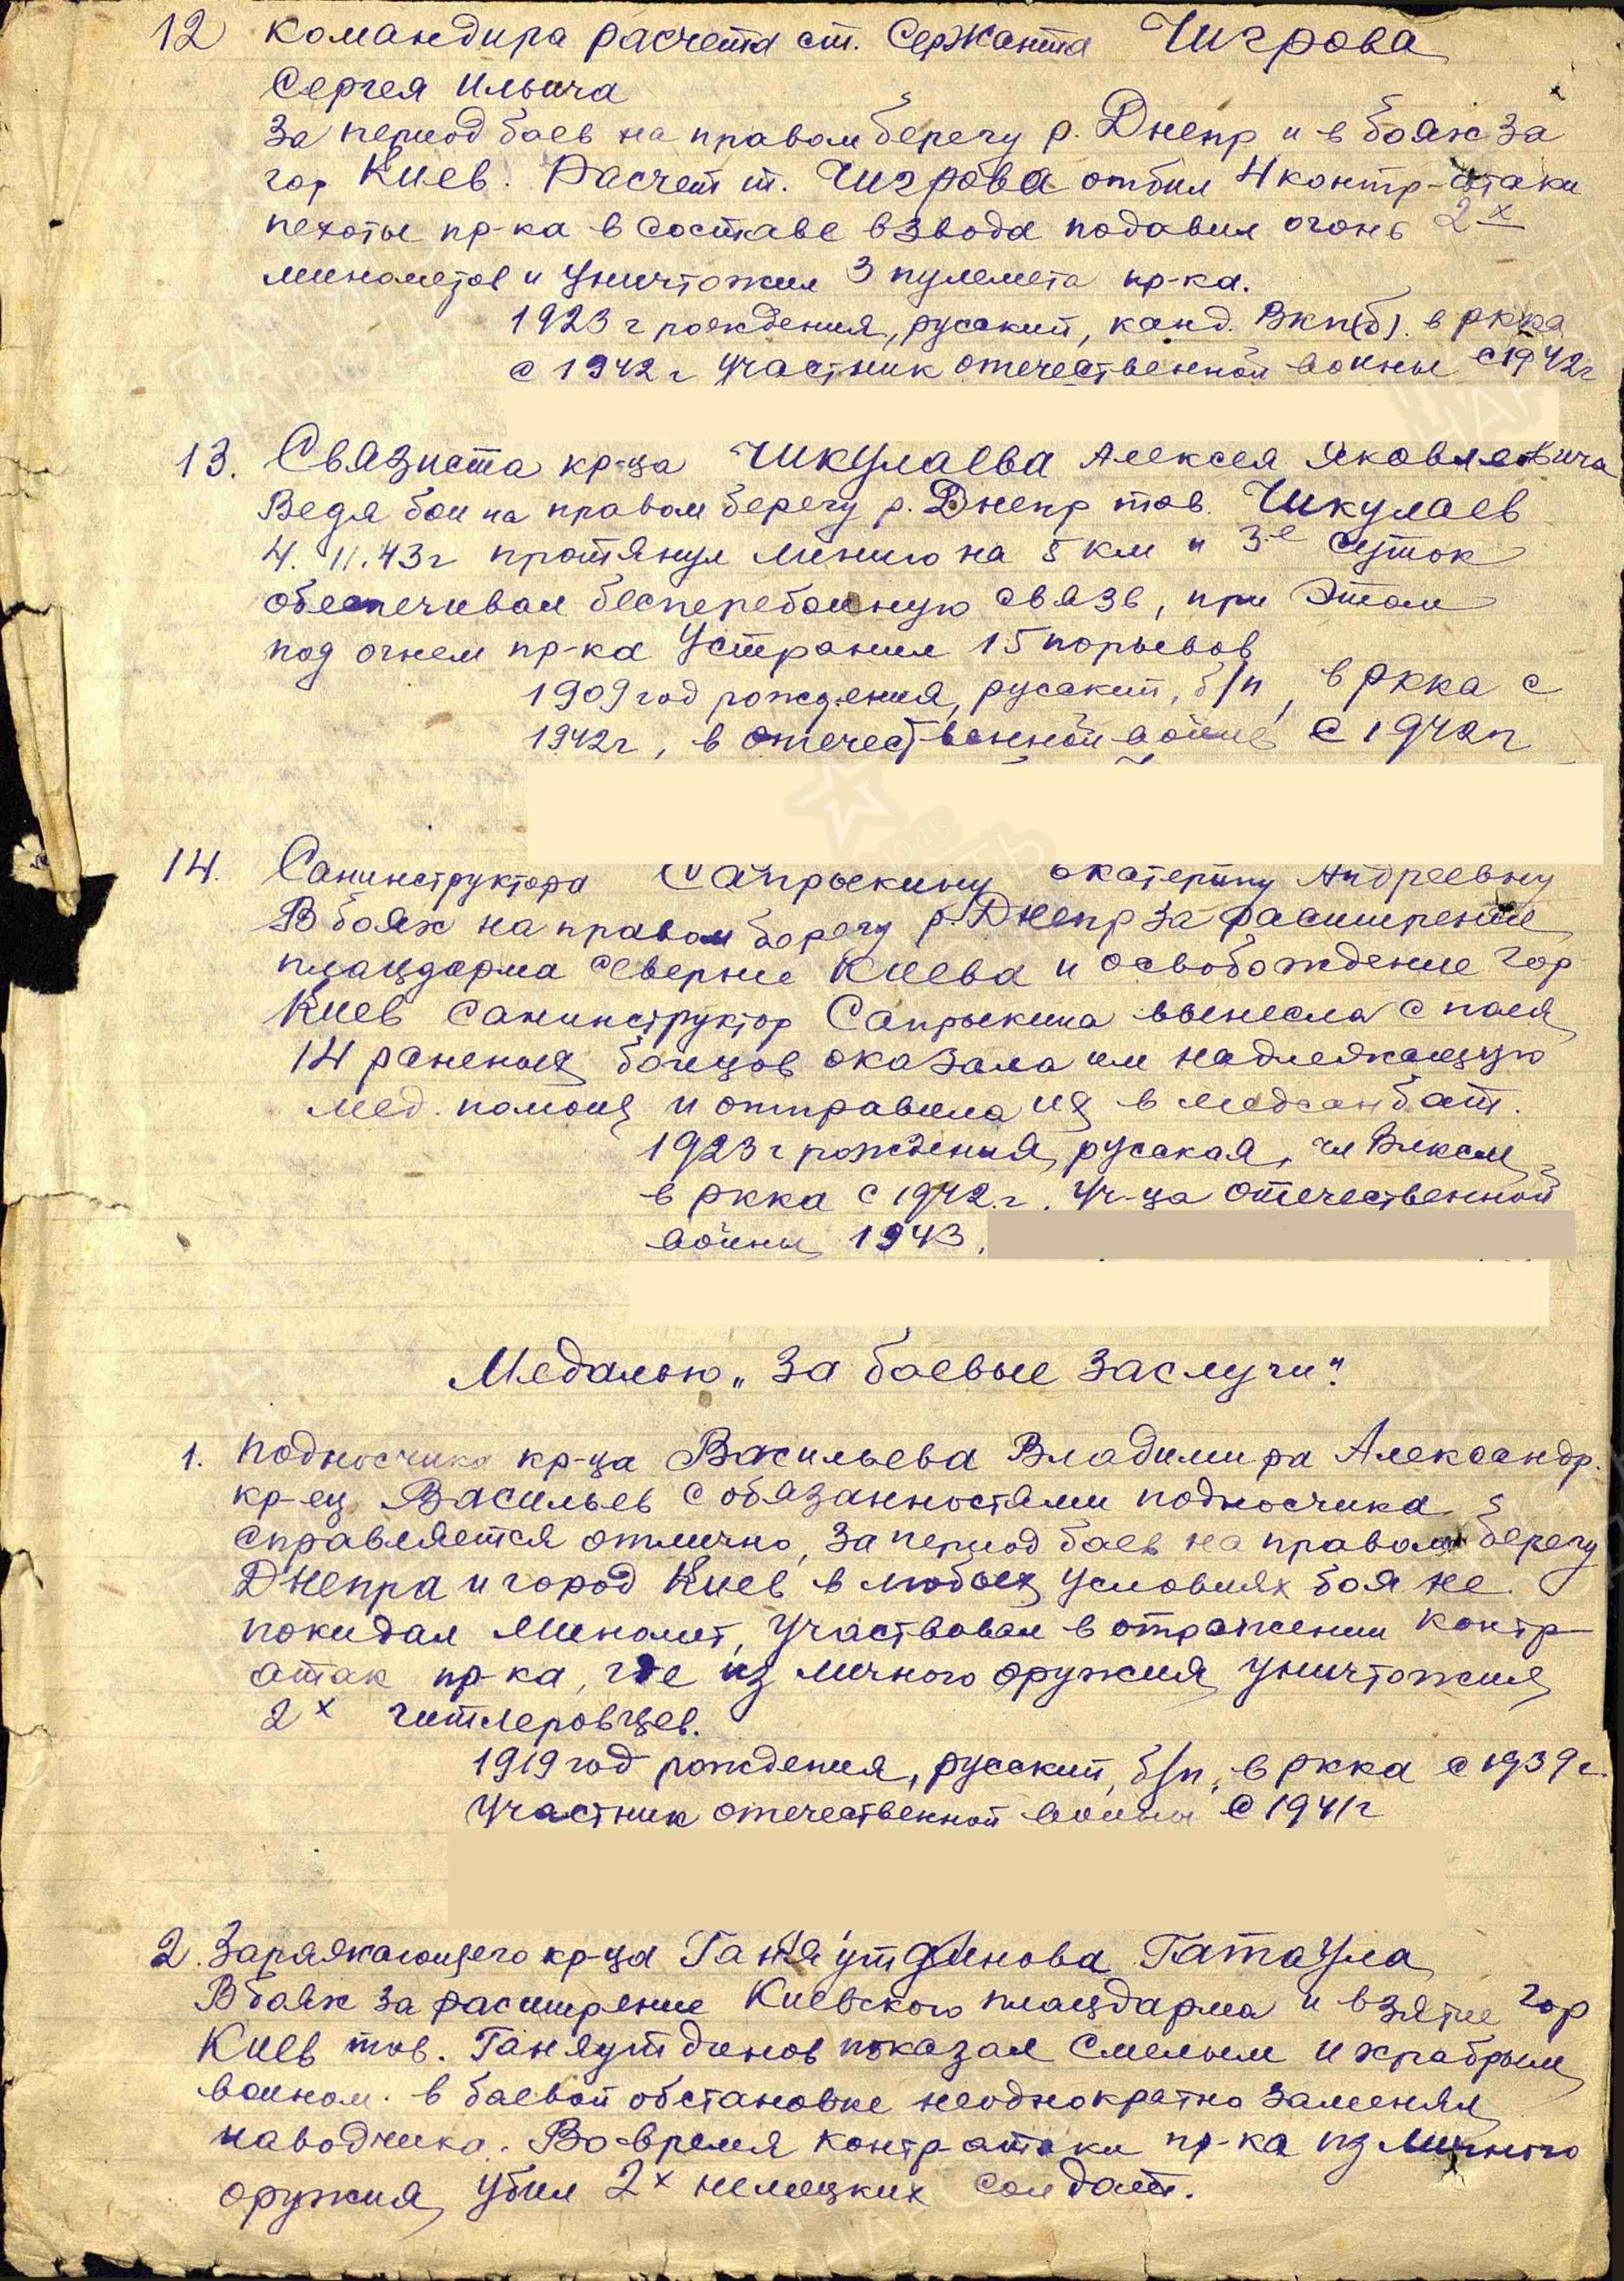 12 командира расчета ст. Сержанта Чигрова
Сергея Ильича
За период боев на правом берегу р. Днепр и в боях за
гор Киев. Расчет т. Чигрова отбил 4 контр-атаки
пехоты пр-ка в составе взвода подавил огонь 2х
минометов и уничтожил 3 пулемета пр-ка.
1923 г рождения, русский, канд. Вкп(б). в ркка
с 1942 г участник отечественной войны с 1942г
13. Связиста кр-ца Чикулаева Алексея Яковлевича
Ведя бои на правом берегу р. Днепр тов. Чикулаев
4.11.43г протянул линию на 5 км и 3-е суток
обеспечивал бесперебойную связь, при этом
под огнем пр-ка Устранил 15 порывов
1909 год рождения, русский, б/п, в ркка с
1942г, в отечественной войне с 1942г
14. Санинструктора Сапрыкину Екатерину Андреевну
В боях на правом берегу р. Днепр за расширение
плацдарма севернее Киева и освобождение гор
Киев Санинструктор Сапрыкина вынесла с поля
14 раненых бойцов оказала им надлежащую
мед. помощ и отправила их в медсанбат.
1923 г рождения, русская, чл Влксм,
в ркка с 1942 г. Уч-ца отечественной
войны 1943.
Медалью „За боевые заслуги".
1. Подносчика кр-ца Васильева Владимира Александр.
кр-ец Васильев с обязанностями подносчика
справляется отлично, за период боев на правом берегу
Днепра и город Киев в любых условиях боя не
покидал миномет, участвовал в отражении контр
атак пр-ка, где из личного оружия уничтожил
2х гитлеровцев.
1919 год рождения, русский, б/п, в ркка с 1939г.
Участник отечественной войны с 1941г
2. Заряжающего кр-ца Ганяутдинова Гатаула
В боях за расширение Киевского плацдарма и взятие гор
Киев тов. Ганяутдинов показал смелым и храбрым
воином. в боевой обстановке неоднократно заменял
наводчика. Во время контр-атаки пр-ка из личного
оружия убил 2х немецких солдат.